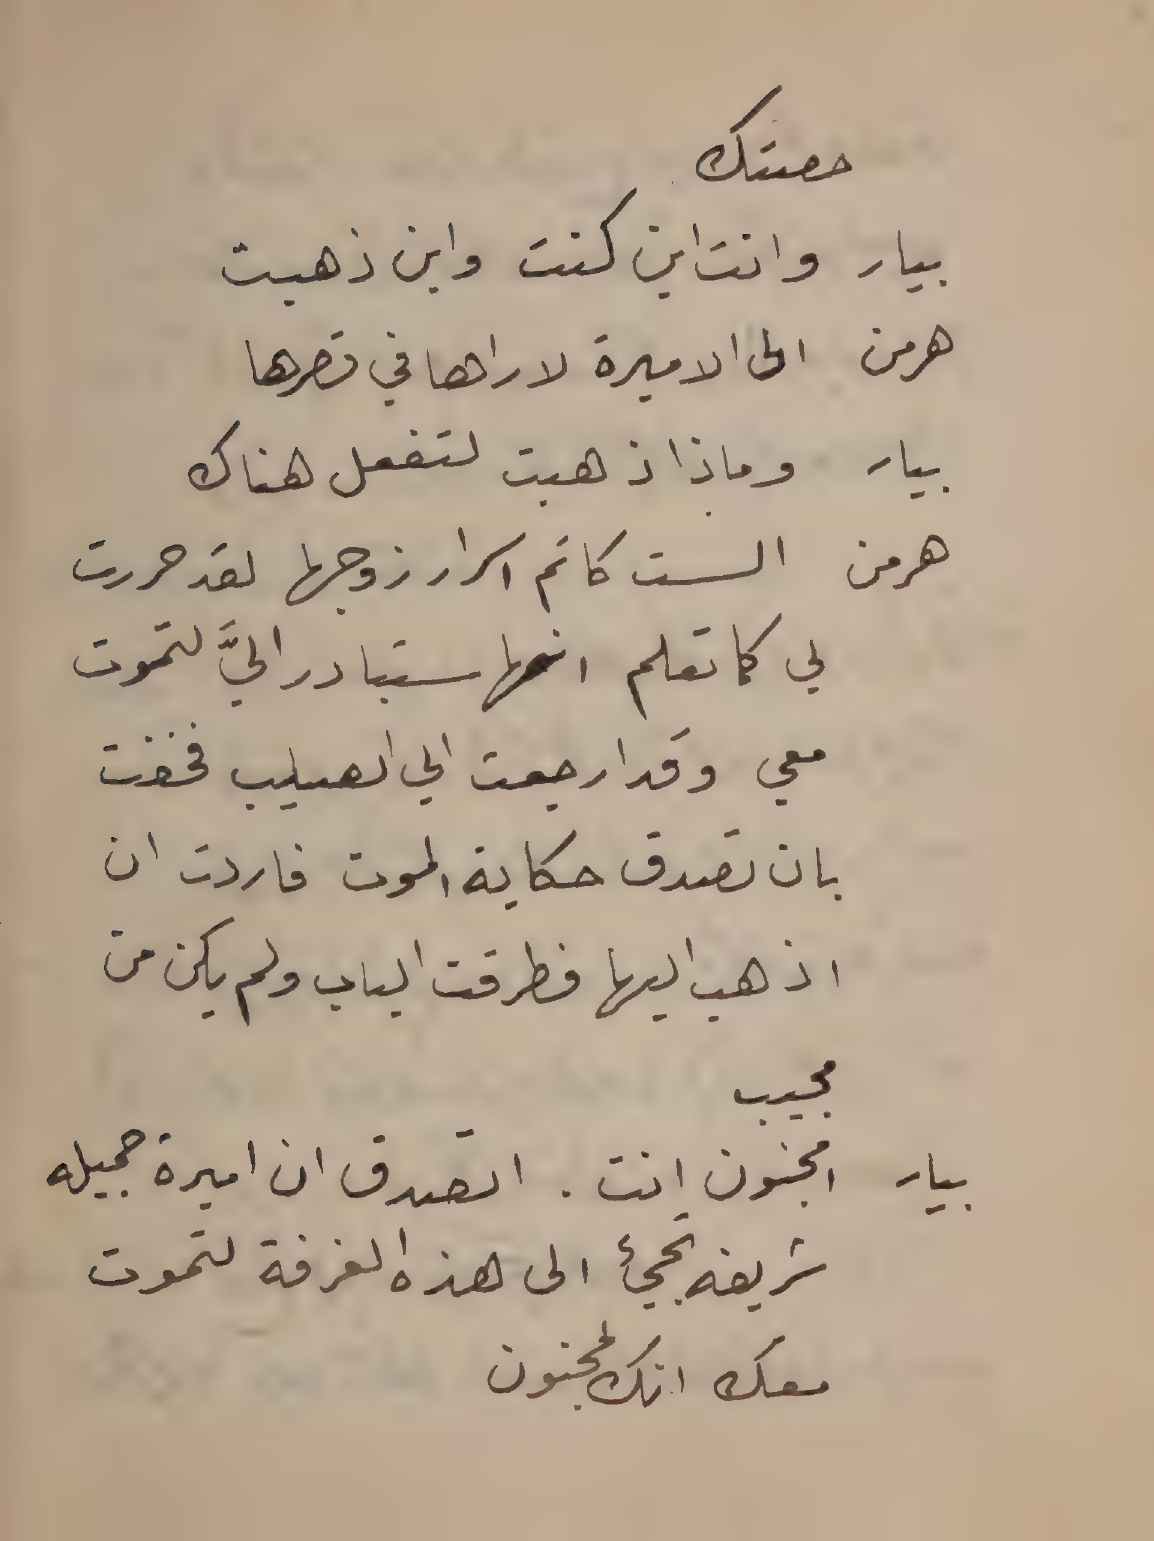 حصتك
بيار وانت اين كنت واين ذهبت
هرمن الى الاميرة لاراها في قصرها
بيار وماذا ذهبت لتفعل هناك
هرمن الست كاتم اسرار زوجها لقد حررت
لي كما تعلم انها ستبادر اليَّ لتموت
معي وقد ارجعت الي الصليب فخفت
بان تصدق حكاية الموت فاردت ان
اذهب اليها فطرقت الباب ولم يكن من
مجيب
بيار امجنون انت . اتصدق ان اميرة جميله
شريفه تجيئ الى هذه الغرفة لتموت
معك انك لمجنون